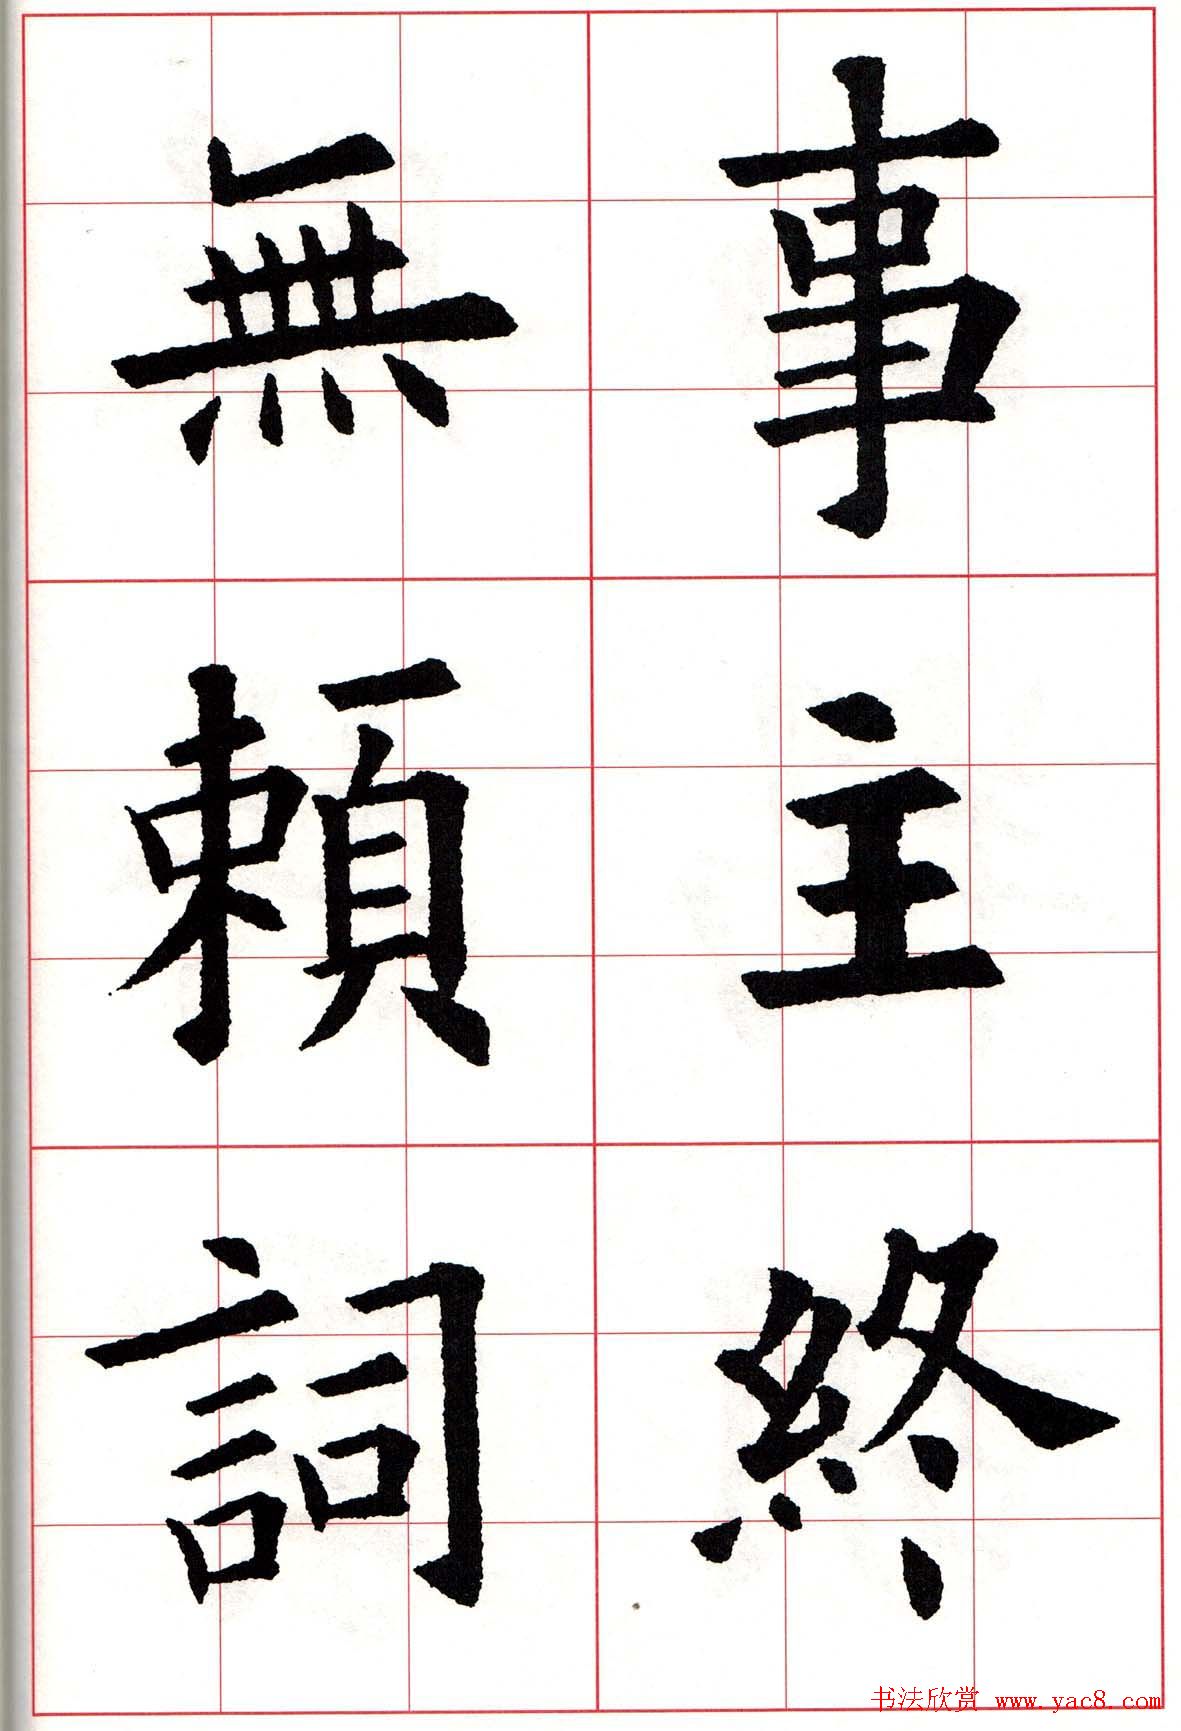 事主終
無頼詞
书法欣赏 www.yac8.com